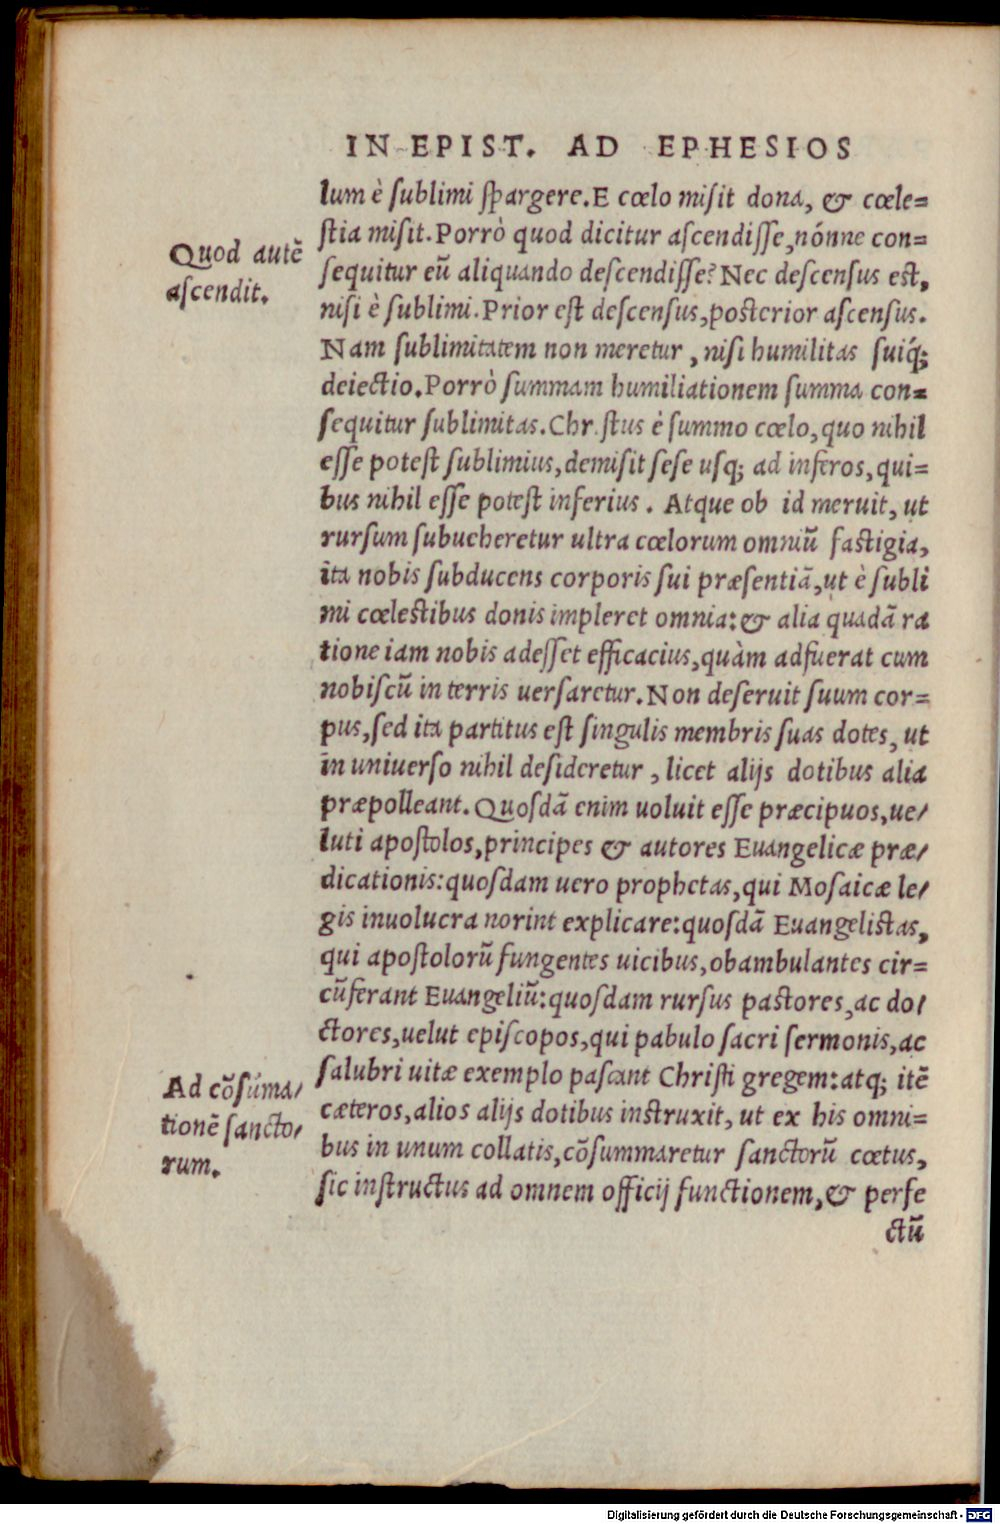 IN EPIST. AD EPHESIOS
lum è sublimi spargere. E cœlo misit dona, & cœle=
stia misit. Porrò quod dicitur ascendisse, nónne con=
Quod autē
ascendit.
sequitur eū aliquando descendisse? Nec descensus est,
nisi è sublimi. Prior est descensus, posterior ascensus.
Nam sublimitatem non meretur, nisi humilitas suiq́;
deiectio. Porrò summam humiliationem summa con=
sequitur sublimitas. Chr.stus è summo cœlo, quo nihil
esse potest sublimius, demisit sese usq; ad inferos, qui=
bus nihil esse potest inferius. Atque ob id meruit, ut
rursum subueheretur ultra cœlorum omniū fastigia,
ita nobis subducens corporis sui præsentiā, ut è subli
mi cœlestibus donis impleret omnia: & alia quadā ra
tione iam nobis adesset efficacius, quàm adfuerat cum
nobiscū in terris uersaretur. Non deseruit suum cor=
pus, sed ita partitus est singulis membris suas dotes, ut
in uniuerso nihil desideretur, licet alijs dotibus alia
præpolleant. Quosdā enim uoluit esse præcipuos, ue/
luti apostolos, principes & autores Euangelicæ præ/
dicationis: quosdam uero prophetas, qui Mosaicæ le/
gis inuolucra norint explicare: quosdā Euangelistas,
qui apostolorū fungentes uicibus, obambulantes cir=
cūferant Euangeliū: quosdam rursus pastores, ac do/
ctores, uelut episcopos, qui pabulo sacri sermonis, ac
salubri uitæ exemplo pascant Christi gregem: atq; itē
Ad cōsúma/
tionē sancto/
rum.
cæteros, alios alijs dotibus instruxit, ut ex his omni=
bus in unum collatis, cōsummaretur sanctorū cœtus,
sic instructus ad omnem officij functionem, & perfe
ctū
Digitalisierung gefördert durch die Deutsche Forschungsgemeinschaft - DFG